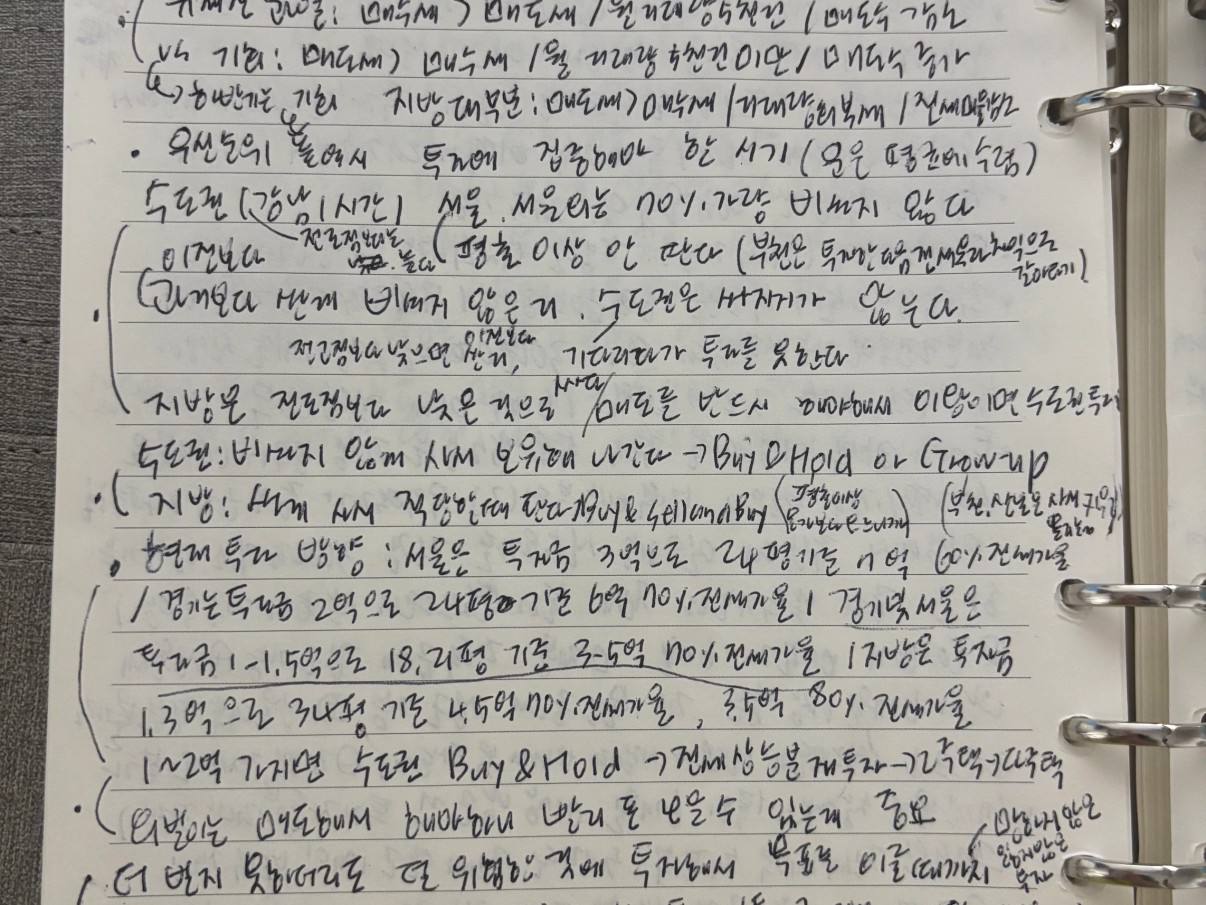 매수세 > 매도세 / 월 거래량 수천건 / 매도수 감소
vs 기회 : 매도세 > 매수세 / 월 거래량 수천건 미만 / 매도수 증가
하반기는 기회 지방 대부분 : 매도세 > 매수세 / 거래량 회복세 /
• 우선순위 투자에 집중해야 한 시기 (운은 평균에 수렴)
수도권 (강남 1시간) 서울, 서울외는 70% 가량 비싸지 않다
이전보다 전고점보다는 평균 이상 안 판다 (부천은 투자한 다음
• (과거보다 싼게 비싸지 않은 거. 수도권은 싸지기가 않는다.
전고점보다 낮으면 이전보다 싼거, 기다리다가 투자를 못한다.
싸다
지방은 전고점보다 낮은 것으로 / 매도를 반드시 해야해서 이왕이면 수도권
수도권 : 비싸지 않게 사서 보유해 나간다 → Buy & Hold or Grow-up
• 지방 : 싸게 사서 적당한 때 판다 Buy & Sell and Buy (평균이상
• 현재 투자 방향 : 서울은 투자금 3억으로 24평 기준 억 60% 전세가율
/ 경기는 투자금 2억으로 24평 기준 6억 70% 전세가율 / 경기 및 서울은
투자금 1-1.5억으로 18, 21평 기준 3-5억 70% 전세가율 / 지방은 투자금
1.3억으로 34평 기준 4.5억 70% 전세가율, 3.5억 80% 전세가율
1~2억 가지면 수도권 Buy & Hold → 전세상승분 재투자 → 2주택 → 다주택
• 외벌이는 매도해서 해야하니 빨리 돈 모을 수 있는게 중요
더 벌지 못하더라도 덜 위험한 것에 투자해서 목표를 이룰 때까지 망하지 않은
잃지 않은
투자